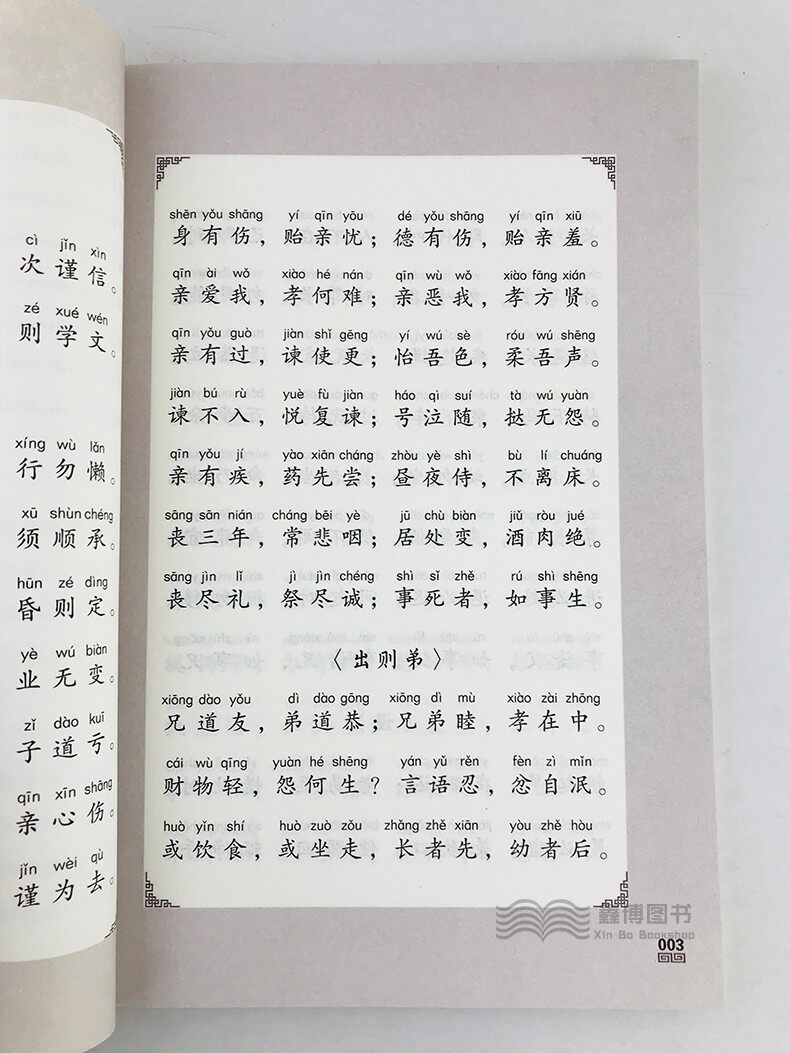 cì jǐn xìn
次谨信。
zé xué wén
则学文。
xíng wù lǎn
行勿懒。
xū shùn chéng
须顺承。
hūn zé dìng
昏则定。
yè wú biàn
业无变。
zǐ dào kuī
子道亏。
qīn xīn shāng
亲心伤。
jǐn wèi qù
谨为去。
shēn yǒu shāng yí qīn yōu dé yǒu shāng yí qīn xiū
身有伤，贻亲忧；德有伤，贻亲羞。
qīn ài wǒ xiào hé nán qīn wù wǒ xiào fāng xián
亲爱我，孝何难；亲恶我，孝方贤。
qīn yǒu guò jiàn shǐ gēng yí wú sè róu wú shēng
亲有过，谏使更；怡吾色，柔吾声。
jiàn bú rù yuè fù jiàn háo qì suí tà wú yuàn
谏不入，悦复谏；号泣随，挞无怨。
qīn yǒu jí yào xiān cháng zhòu yè shì bù lí chuáng
亲有疾，药先尝；昼夜侍，不离床。
sāng sān nián cháng bēi yè jū chù biàn jiǔ ròu jué
丧三年，常悲咽；居处变，酒肉绝。
sāng jìn lǐ jì jìn chéng shì sǐ zhě rú shì shēng
丧尽礼，祭尽诚；事死者，如事生。
〈出则弟〉
xiōng dào yǒu dì dào gōng xiōng dì mù xiào zài zhōng
兄道友，弟道恭；兄弟睦，孝在中。
cái wù qīng yuàn hé shēng yán yǔ rěn fèn zì mǐn
财物轻，怨何生？言语忍，忿自泯。
huò yǐn shí huò zuò zǒu zhǎng zhě xiān yòu zhě hòu
或饮食，或坐走，长者先，幼者后。
鑫博图书
Xin Bo Bookshop
003